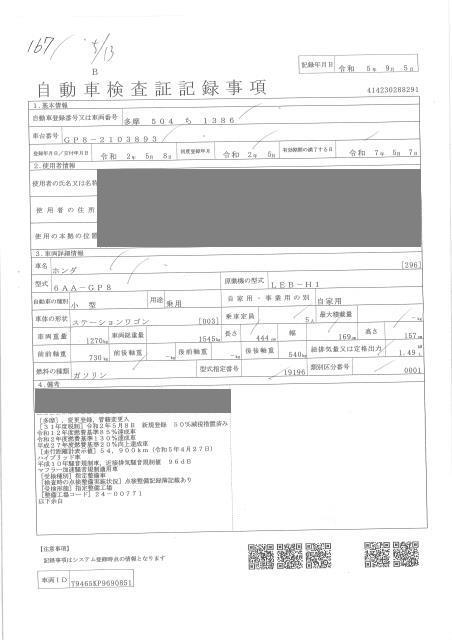 167/ 5/13
B
記録年月日 令和 5年 9月 5日
自動車検査証記録事項
414230288291
1.基本情報
自動車登録番号又は車両番号 多摩 504 ち 1386
車台番号 GP8-2103893
登録年月日/交付年月日 令和 2年 5月 8日 初度登録年月 令和 2年 5月 有効期間の満了する日 令和 7年 5月 7日
2.使用者情報
使用者の氏名又は名称
使用者の住所
使用の本拠の位置
3.車両詳細情報
車名 ホンダ [296]
型式 6AA-GP8 原動機の型式 LEB-H1
自動車の種別 小型 用途 乗用 自家用・事業用の別 自家用
車体の形状 ステーションワゴン [003] 乗車定員 5人 最大積載量 -kg
車両重量 1270kg 車両総重量 1545kg 長さ 444cm 幅 169cm 高さ 157cm
前前軸重 730kg 前後軸重 -kg 後前軸重 -kg 後後軸重 540kg 総排気量又は定格出力 1.49L
燃料の種類 ガソリン 型式指定番号 19196 類別区分番号 0001
4.備考
[多摩],変更登録,管轄変更入
[31年度税制]令和2年5月8日 新規登録 50%減税措置済み
令和12年度燃費基準85%達成車
令和2年度燃費基準130%達成車
平成27年度燃費基準20%向上達成車
[走行距離計表示値]54,900km(令和5年4月27日)
ハイブリッド車
平成10年騒音規制車,近接排気騒音規制値 96dB
マフラー加速騒音規制適用車
[受検種別]指定整備車
[検査時の点検整備実施状況]点検整備記録簿記載あり
[受検形態]指定整備工場
[整備工場コード]24-00771
以下余白
[注意事項]
記録事項はシステム登録時点の情報となります
車両ID T9465KP9690851